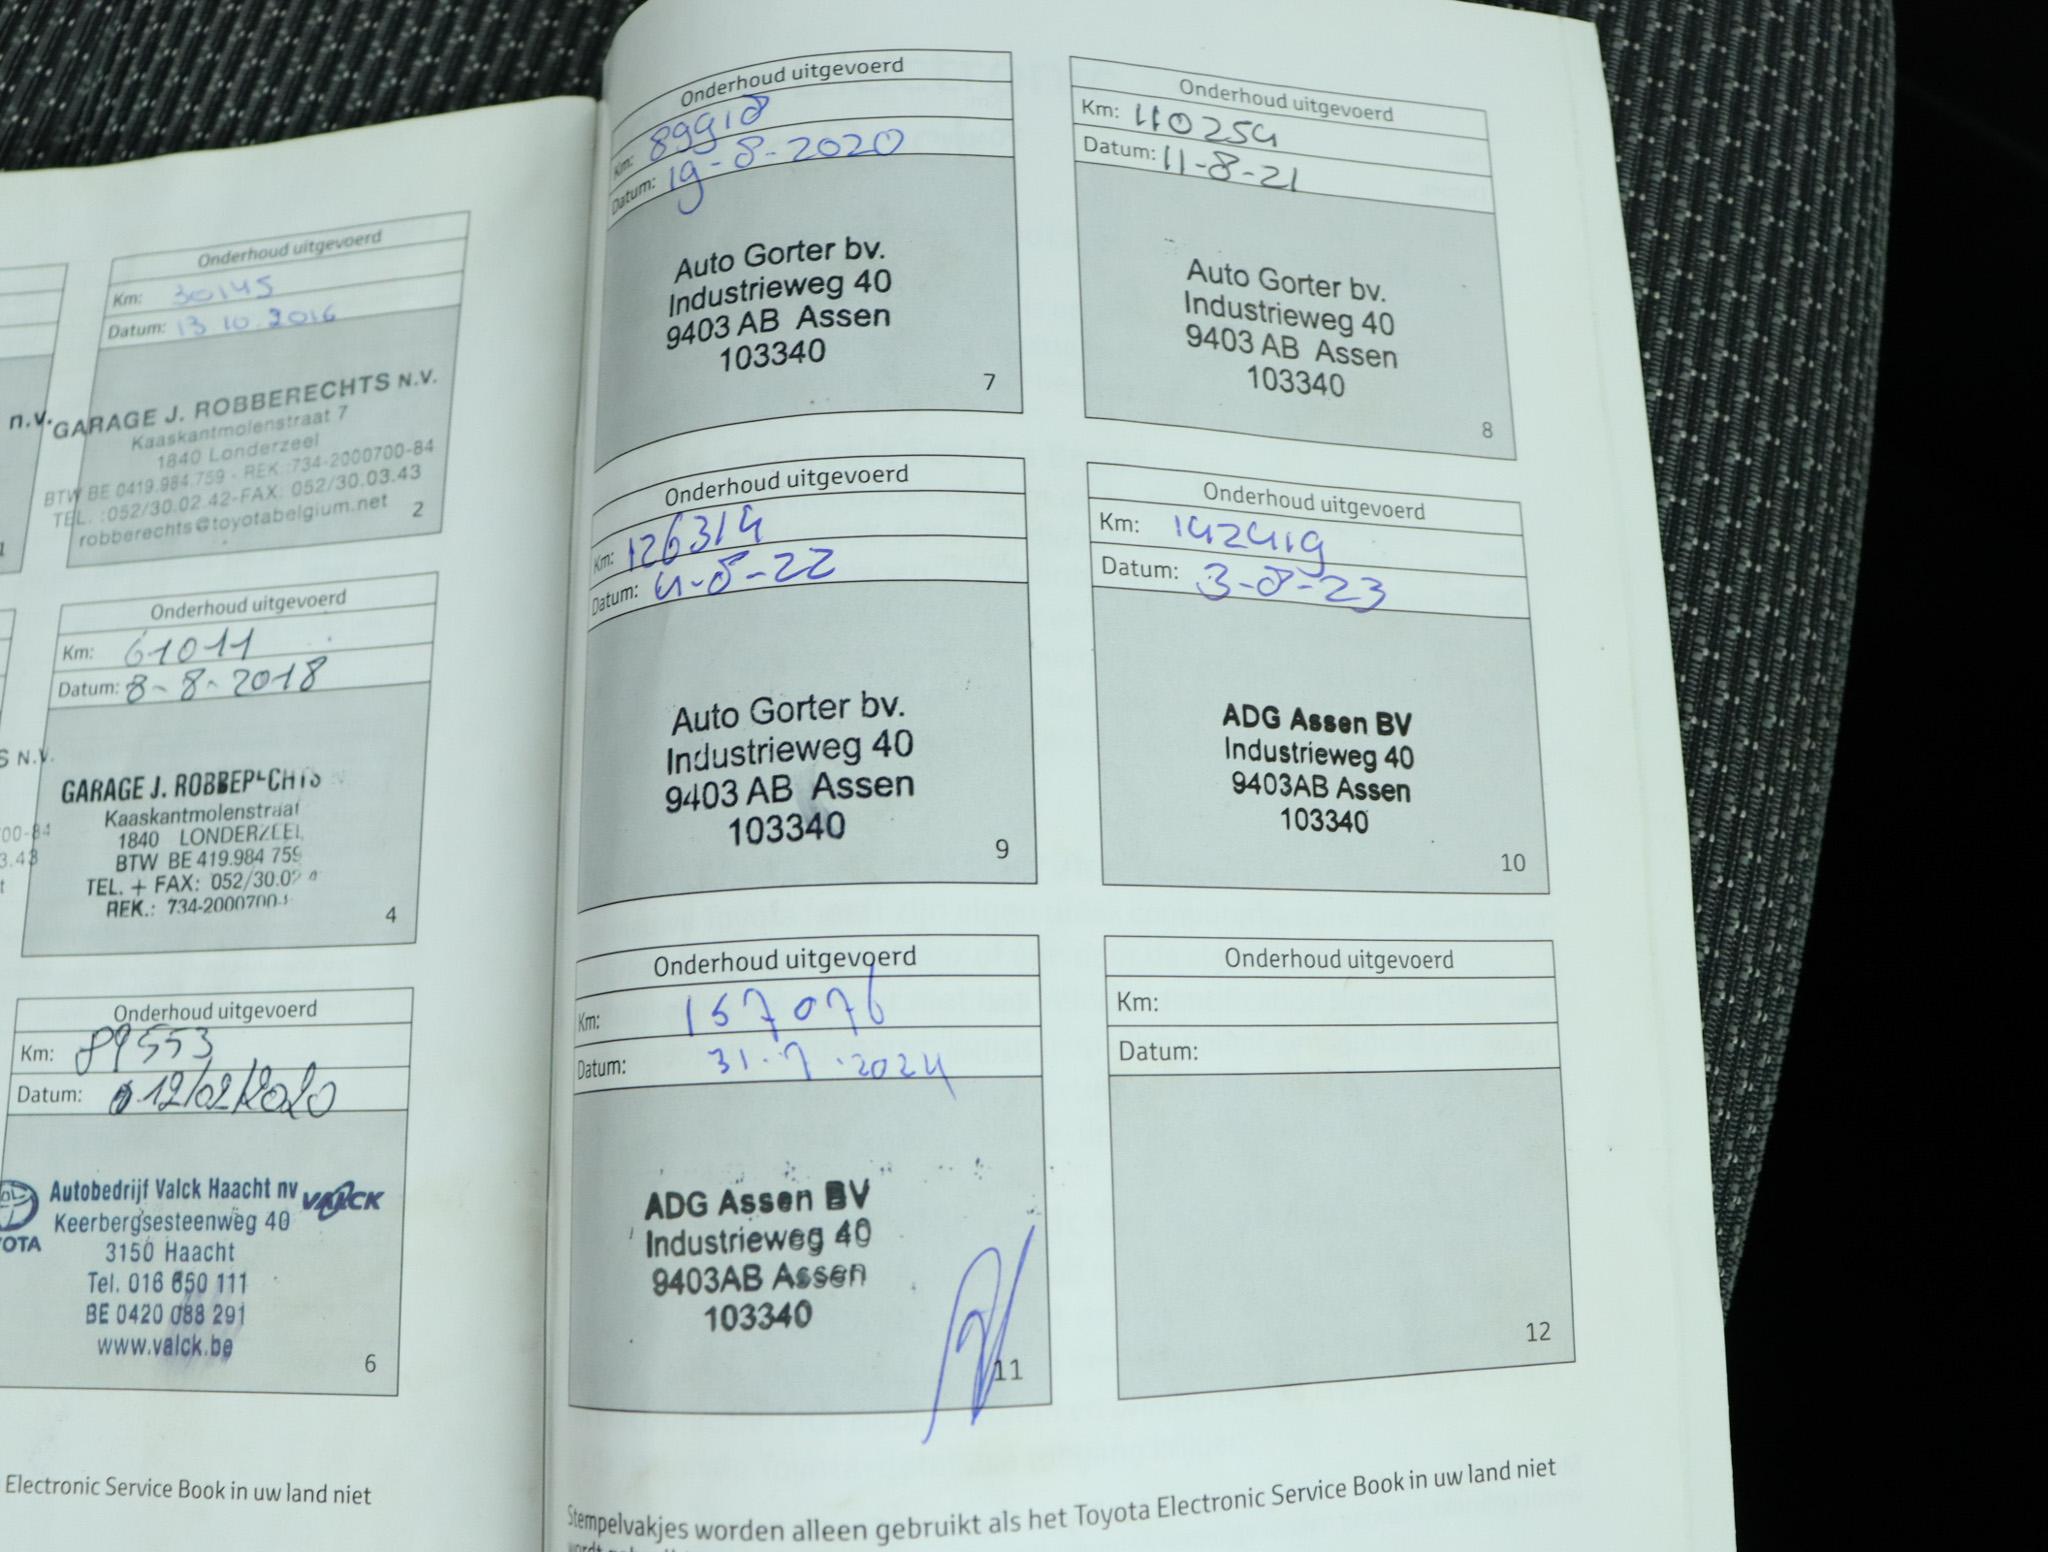 Onderhoud uitgevoerd
Km: 30145
Datum: 13 10.2016
n.v.
GARAGE J. ROBBERECHTS N.V.
Kaaskantmolenstraat 7
1840 Londerzeel
BTW BE 0419.984.759 - REK.:734-2000700-84
TEL. :052/30.02.42-FAX: 052/30.03.43
robberechts@toyotabelgium.net
2
Onderhoud uitgevoerd
Km: 61011
Datum: 8-8-2018
S N.V.
GARAGE J.
Kaaskantmolenstraat
1840 LONDERZEEL
BTW BE 419.984 759
TEL. + FAX: 052/30.02
REK.: 734-2000700-
00-84
3.43
4
Onderhoud uitgevoerd
Km: 89553
Datum: 12/02/2020
OTA
Autobedrijf Valck Haacht nv VALCK
Keerbergsesteenweg 40
3150 Haacht
Tel. 016 650 111
BE 0420 088 291
www.valck.be
6
Electronic Service Book in uw land niet
Onderhoud uitgevoerd
Km: 89918
Datum: 19-8-2020
Auto Gorter bv.
Industrieweg 40
9403 AB Assen
103340
7
Onderhoud uitgevoerd
Km: 110254
Datum: 11-8-21
Auto Gorter bv.
Industrieweg 40
9403 AB Assen
103340
8
Onderhoud uitgevoerd
Km: 126314
Datum: 4-8-22
Auto Gorter bv.
Industrieweg 40
9403 AB Assen
103340
9
Onderhoud uitgevoerd
Km: 142419
Datum: 3-8-23
ADG Assen BV
Industrieweg 40
9403AB Assen
103340
10
Onderhoud uitgevoerd
Km: 157076
Datum: 31.7.2024
ADG Assen BV
Industrieweg 40
9403AB Assen
103340
11
Onderhoud uitgevoerd
Km:
Datum:
12
Stempelvakjes worden alleen gebruikt als het Toyota Electronic Service Book in uw land niet